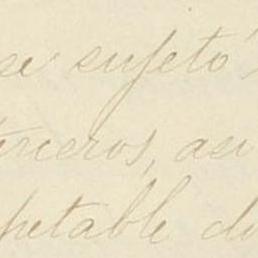 se sujetó
terceros, asi
petable d